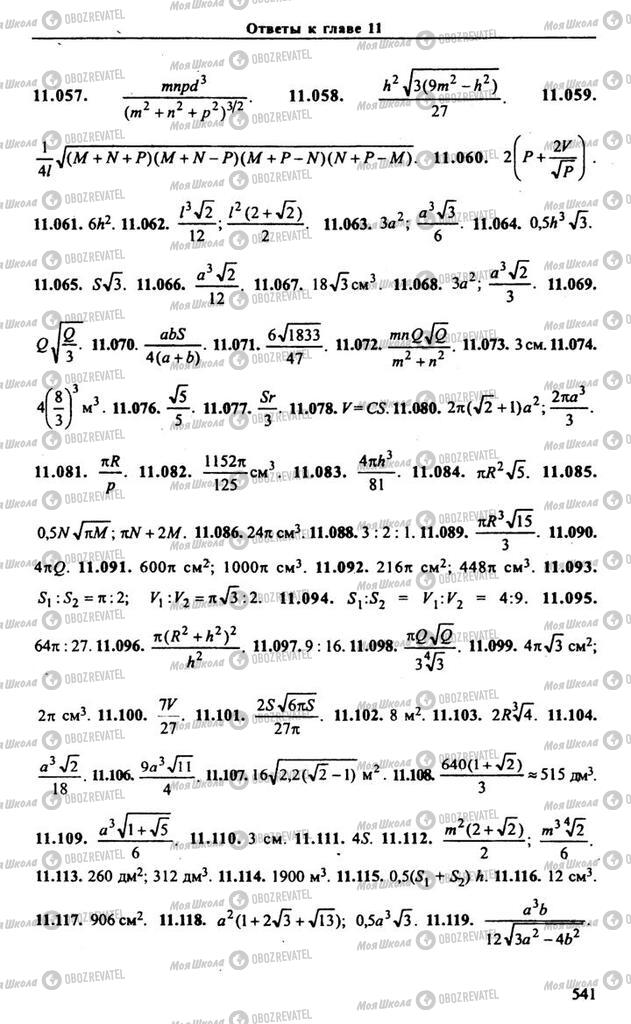 Ответы к главе 11
11.057. mnpd³ / (m² + n² + p²)^(3/2). 11.058. h²√(3(9m² − h²)) / 27. 11.059.
1/(4l) √((M + N + P)(M + N − P)(M + P − N)(N + P − M)). 11.060. 2(P + 2V/√P).
11.061. 6h². 11.062. l³√2/12; l²(2 + √2)/2. 11.063. 3a²; a³√3/6. 11.064. 0,5h³√3.
11.065. S√3. 11.066. a³√2/12. 11.067. 18√3 см³. 11.068. 3a²; a³√2/3. 11.069.
Q√(Q/3). 11.070. abS/(4(a + b)). 11.071. 6√1833/47. 11.072. mnQ√Q/(m² + n²). 11.073. 3 см. 11.074.
4(8/3)³ м³. 11.076. √5/5. 11.077. Sr/3. 11.078. V = CS. 11.080. 2π(√2 + 1)a²; 2πa³/3.
11.081. πR/p. 11.082. 1152π/125 см³. 11.083. 4πh³/81. 11.084. πR²√5. 11.085.
0,5N√(πM); πN + 2M. 11.086. 24π см³. 11.088. 3 : 2 : 1. 11.089. πR³√15/3. 11.090.
4πQ. 11.091. 600π см²; 1000π см³. 11.092. 216π см²; 448π см³. 11.093.
S₁ : S₂ = π : 2; V₁ : V₂ = π√3 : 2. 11.094. S₁:S₂ = V₁:V₂ = 4:9. 11.095.
64π : 27. 11.096. π(R² + h²)²/h². 11.097. 9 : 16. 11.098. πQ√Q/(3∜3). 11.099. 4π√3 см²;
2π см³. 11.100. 7V/27. 11.101. 2S√(6πS)/(27π). 11.102. 8 м². 11.103. 2R∛4. 11.104.
a³√2/18. 11.106. 9a³√11/4. 11.107. 16√(2,2(√2 − 1)) м². 11.108. 640(1 + √2)/3 ≈ 515 дм³.
11.109. a³√(1 + √5)/6. 11.110. 3 см. 11.111. 4S. 11.112. m²(2 + √2)/2; m³∜2/6.
11.113. 260 дм²; 312 дм³. 11.114. 1900 м³. 11.115. 0,5(S₁ + S₂) h. 11.116. 12 см³.
11.117. 906 см². 11.118. a²(1 + 2√3 + √13); 0,5a³√3. 11.119. a³b/(12√(3a² − 4b²)).
541